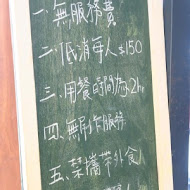 一、無服務費
二、低消每人$150
三、用餐時間為2hr
四、無另作服務
五、禁攜帶外食